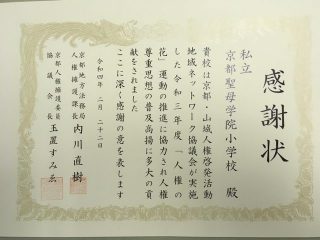 感謝状
私立
京都聖母学院小学校 殿
貴校は京都・山城人権啓発活動
地域ネットワーク協議会が実施
した令和三年度「人権の
花」運動の推進に協力され人権
尊重思想の普及高揚に多大の貢
献をされました
ここに深く感謝の意を表します
令和四年 二月 二十二日
京都地方法務局
人権擁護課長 内川直樹
京都人権擁護委員
協議会長 玉置すみゑ